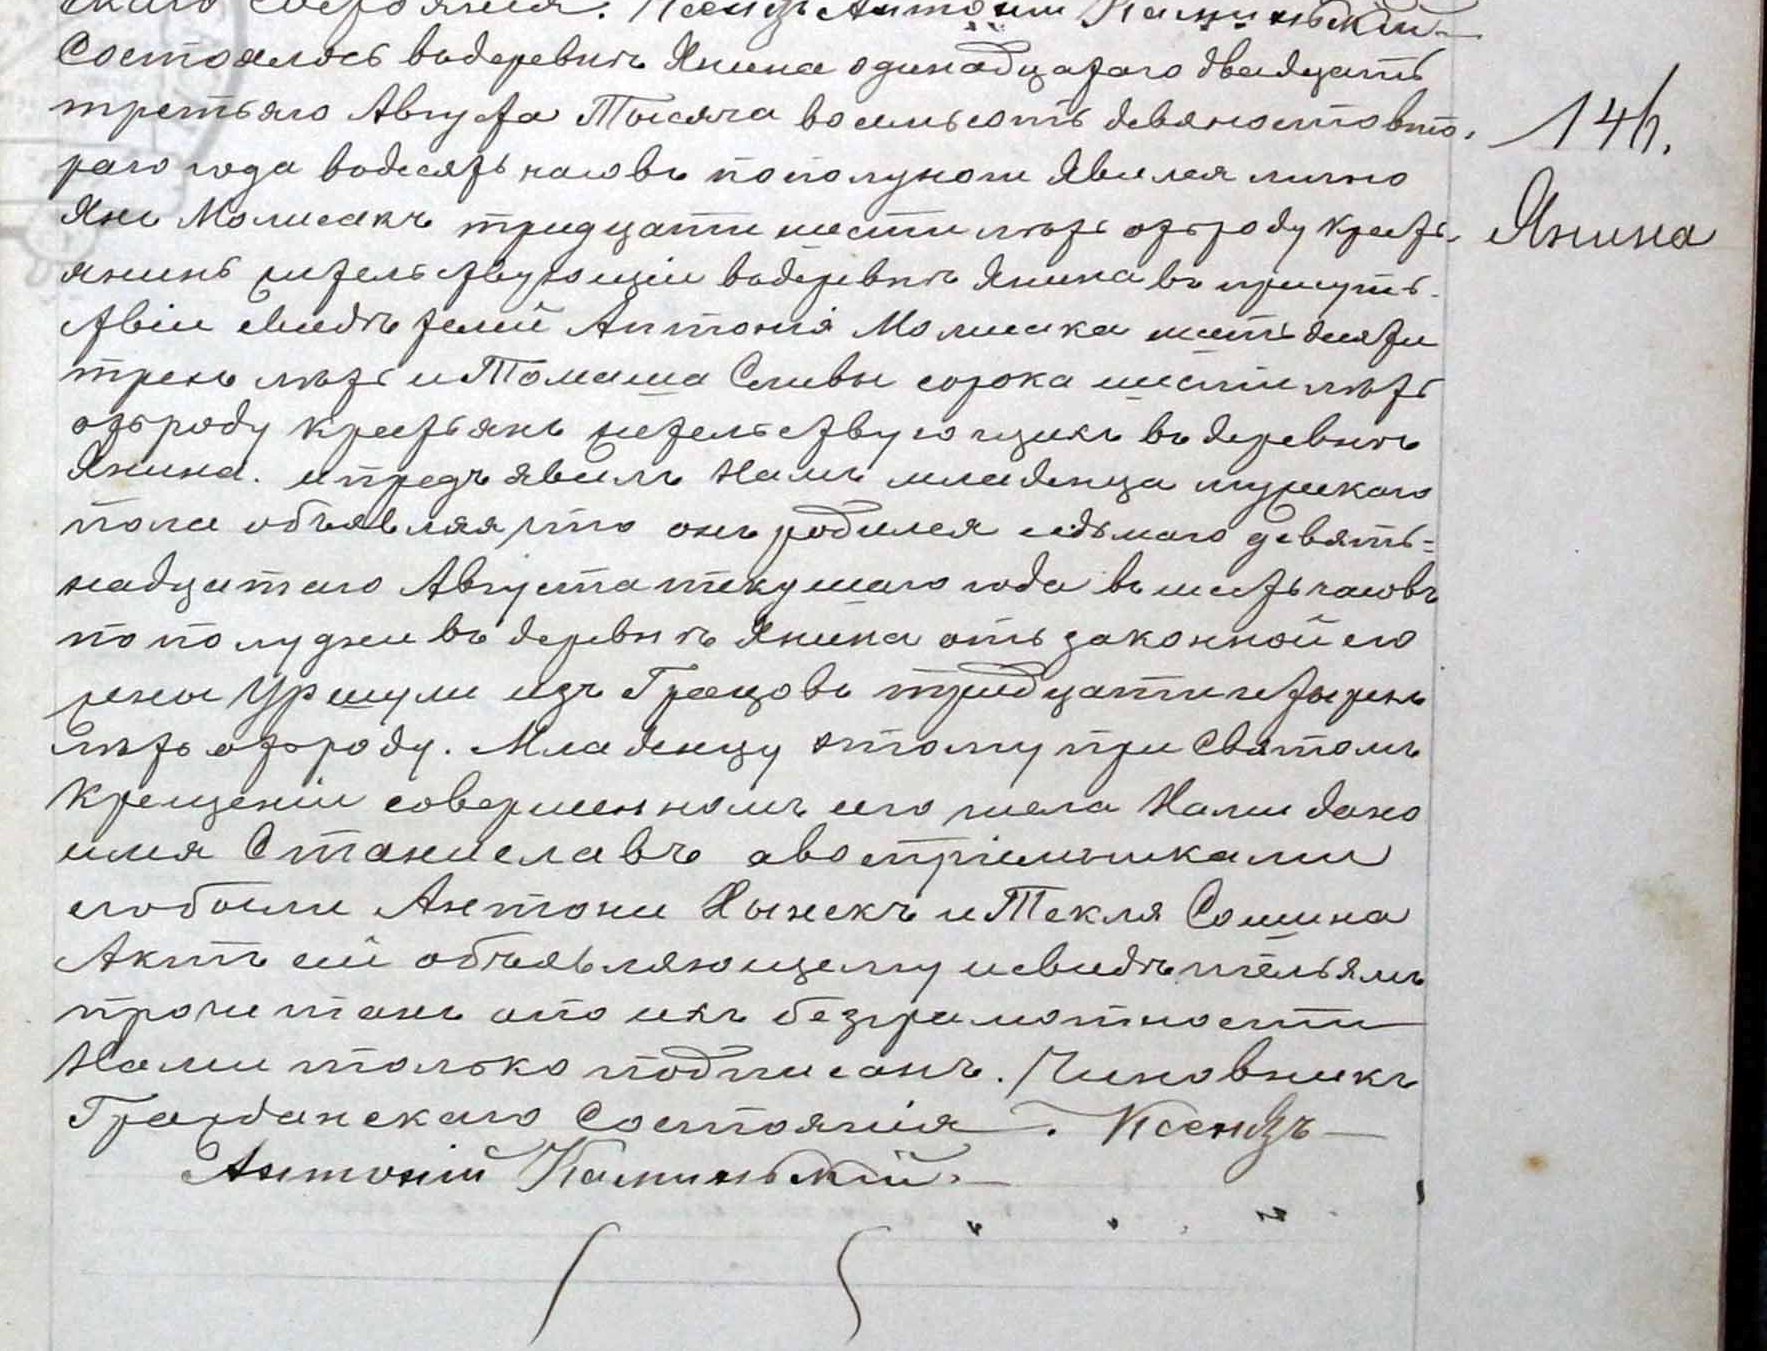 скаго состоянія. Ксендзъ Антоній Каминьскій
Состоялось въ деревнѣ Янина одинадцатаго двадцать
третьяго Августа Тысяча восемьсотъ девяносто вто-
раго года въ десять часовъ пополуночи Явился лично
Янъ Молисакъ тридцати шести лѣтъ отъ роду кресть-
янинъ жительствующій въ деревнѣ Янина въ присут-
ствіи свидѣтелей Антонія Молисака шестьдесяти
трехъ лѣтъ и Томаша Сливы сорока шести лѣтъ
отъ роду крестьянъ жительствующихъ въ деревнѣ
Янина. и предъявилъ Намъ младенца мужскаго
пола объявляя что онъ родился седьмаго девять=
надцатаго Августа текущаго года въ шесть часовъ
пополудни въ деревнѣ Янина отъ законной его
жены Уршули изъ Грацовъ тридцати четырехъ
лѣтъ отъ роду. Младенцу этому при Святомъ
Крещеніи совершенномъ сего числа Нами дано
имя Станиславъ а воспріемниками
его были Антони Хынекъ и Текля Сошина
Актъ сей объявляющему и свидѣтельямъ
прочитанъ а по ихъ безграмотности
Нами только подписанъ. Чиновникъ
Гражданскаго Состоянія. Ксендзъ
Антоній Каминьскій.
146.
Янина